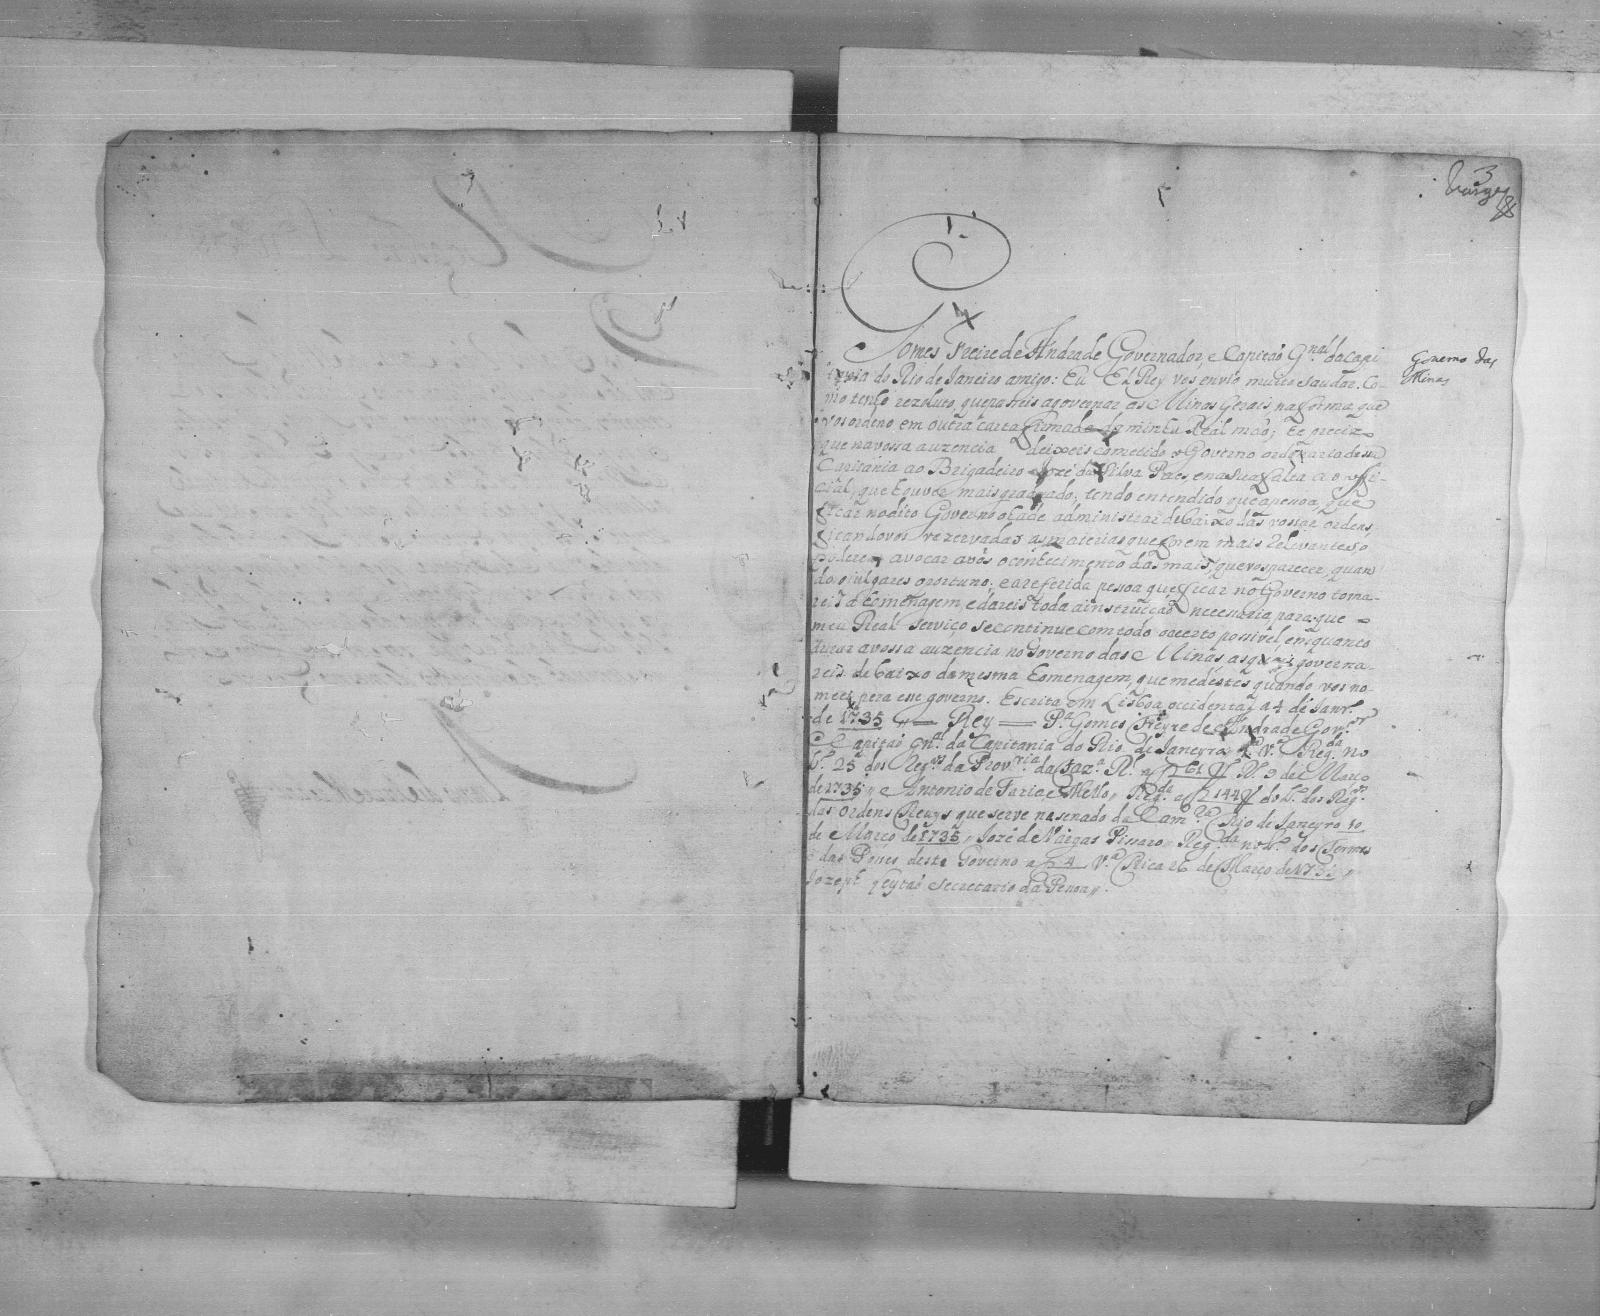 3
Gomes Freire de Andrade Governador, e Capitaõ Gnal. da Capi
Governo das
Minas
do Rio de Janeiro amigo: Eu El Rey vos envio muito saudar. Co-
mo tenho rezoluto, que passeis a governar as Minas Gerais, na forma que
vos ordeno em outra carta firmada da minha Real maõ; He precizo
que na vossa auzencia deixeis cometido o Governo dessa
Capitania ao Brigadeiro Jozé da Silva Paes, e na sua falta ao offi-
cial, que houver mais graduado; tendo entendido que a pessoa, que
ficar no dito Governo o hade administrar debaixo das vossas ordens,
ficandovos rezervadas as materias que forem mais relevantes, e
poderey avocar a vós o conhecimento das mais, que vos parecer, quan
do o julgares oportuno; e a referida pessoa que ficar no Governo toma-
reis a homenagem, e dareis toda a instrucçaõ necessaria para que o
meu Real serviço se continue com todo o acerto possivel, em quanto
durar a vossa auzencia no Governo das Minas, as quais governa-
reis debaixo da mesma homenagem, que me déstes quando vos no-
meey pera esse governo. Escrita em Lisboa occidental a 4 de Janr.º
de 1735 // Rey // P.ª Gomes Freyre de Andrade Gov.or
e Capitaõ Gn.al da Capitania do Rio de Janeyro 1.ª V.ª Reg.da no
L.º 25 dos Reg.os da Prov.ria da Faz.ª R.l a f 61 R.º 9 de Março
de 1735 // e Antonio de Faria e Mello // Reg.da a f 144 do L.º dos Reg.os
das ordens Reays que serve no senado da Cam.ra Rio de Janeyro 10
de Março de 1735 // José de Vargas Pissaro // Reg.da no L.º dos Termos
e das Posses deste Governo a f 4 V.ª Rica 26 de Março de 1735 //
Jozeph Feytaõ secretario da Pessoa //.